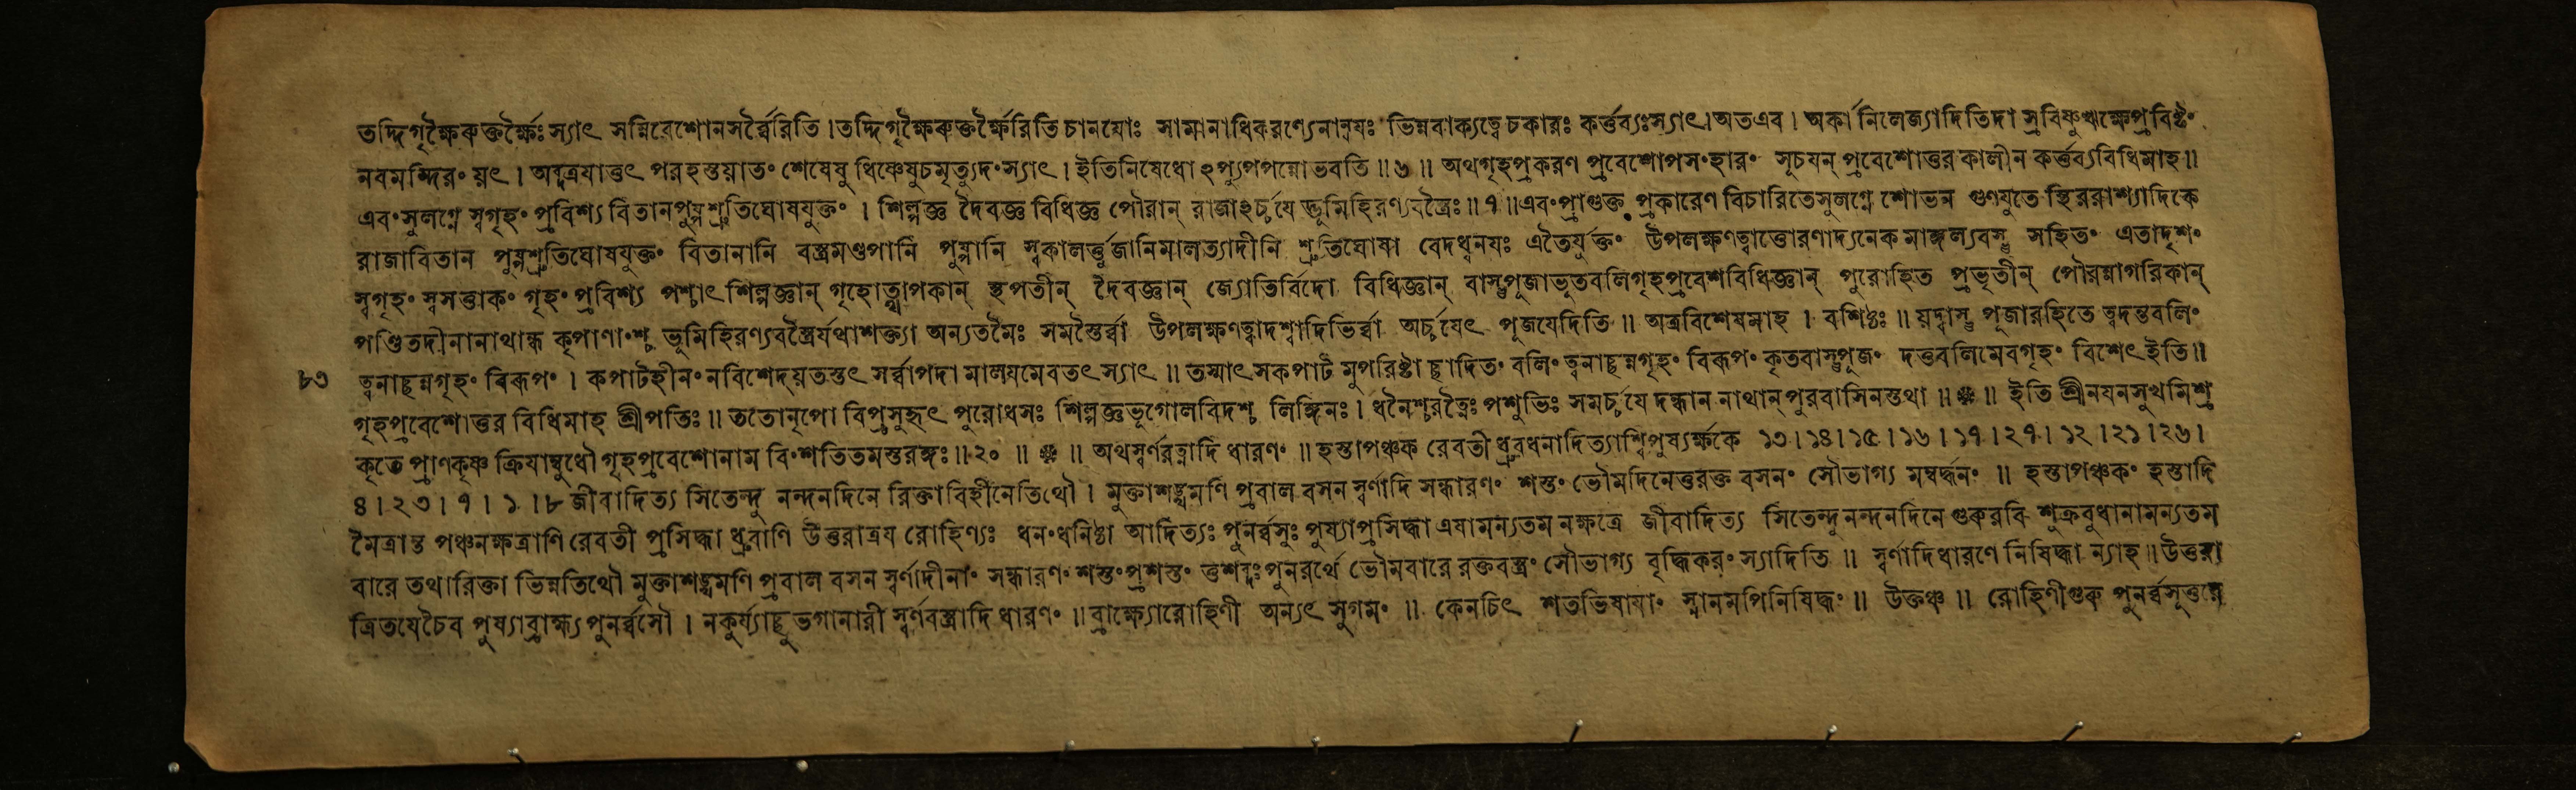 তদ্দিগৃক্ষৈৰুক্তর্ক্ষৈঃ স্যাৎ সন্নিবেশোনসর্ব্বৈরিতি । তদ্দিগৃক্ষৈৰুক্তর্ক্ষৈরিতি চানয়োঃ সামানাধিকরণ্যেনান্বযঃ ভিন্নবাক্যত্বে চকারঃ কর্ত্তব্যঃস্যাৎ । অতএব । অর্কানিলেজ্যাদিতিদা স্রবিষ্ণুঋক্ষেপ্রবিষ্টং
নবমন্দিরং য়ৎ । অব্দত্রযাত্তৎ পরহস্তয়াতং শেষেষু ধিষ্ণেষুচমৃত্যুদংস্যাৎ । ইতিনিষেধো ঽপ্যুপপন্নোভবতি ॥ ৬ ॥ অথগৃহপ্রকরণ প্রবেশোপসংহারং সূচযন্ প্রবেশোত্তর কালীন কর্ত্তব্যবিধিমাহ ॥
এবংসুলগ্নে স্বগৃহং প্রবিশ্য বিতানপুষ্পশ্রুতিঘোষযুক্তং । শিল্পজ্ঞ দৈবজ্ঞ বিধিজ্ঞ পৌরান্ রাজাঽর্চ্চযে দ্ভূমিহিরণ্যবস্ত্রৈঃ ॥ ৭ ॥ এবংপ্রাগুক্ত প্রকারেণ বিচারিতেসুলগ্নে শোভন গুণযুতে স্থিররাশ্যাদিকে
রাজাবিতান পুষ্পশ্রুতিঘোষযুক্তং বিতানানি বস্ত্রমণ্ডপানি পুষ্পানি স্বকালর্ত্তুজানিমালত্যাদীনি শ্রুতিঘোষা বেদধ্বনযঃ এতৈর্যুক্তং উপলক্ষণত্বাত্তোরণাদ্যনেক মাঙ্গল্যবস্তু সহিতং এতাদৃশং
স্বগৃহং স্বসত্তাকং গৃহং প্রবিশ্য পশ্চাৎ শিল্পজ্ঞান্ গৃহোত্থাপকান্ স্থপতীন্ দৈবজ্ঞান্ জ্যোতির্বিদো বিধিজ্ঞান্ বাস্তুপূজাভুতবলিগৃহপ্রবেশবিধিজ্ঞান্ পুরোহিত প্রভৃতীন্ পৌরান্নাগরিকান্
পণ্ডিতদীনানাথান্ধ কৃপাণাংশ্চ ভূমিহিরণ্যবস্ত্রৈর্যথাশক্ত্যা অন্যতমৈঃ সমস্তৈর্ব্বা উপলক্ষণত্বাদশ্বাদিভির্ব্বা অর্চ্চযেৎ পূজযেদিতি ॥ অত্রবিশেষমাহ । বশিষ্ঠঃ ॥ য়দ্বাস্তু পূজারহিতে ত্বদত্তবলিং
৮৩ ত্বনাচ্ছন্নগৃহং বিৰূপং । কপাটহীনং নবিশেদ্য়তস্তৎ সর্ব্বাপদা মালযমেবতৎ স্যাৎ ॥ তস্মাৎ সকপাট মুপরিষ্টা চ্ছাদিতং বলিং ত্বনাচ্ছন্নগৃহং বিৰূপং কৃতবাস্তুপূজং দত্তবলিমেবগৃহং বিশেৎ ইতি ॥
গৃহপ্রবেশোত্তর বিধিমাহ শ্রীপতিঃ ॥ ততোনৃপো বিপ্রসুহৃৎ পুরোধসঃ শিল্পজ্ঞভূগোলবিদশ্চ লিঙ্গিনঃ । ধনৈশ্চরত্নৈঃ পশুভিঃ সমর্চ্চযে দন্ধান নাথান্ পুরবাসিনস্তথা ॥ ❁ ॥ ইতি শ্রীনযনসুখমিশ্র
কৃতে প্রাণকৃষ্ণ ক্রিযাম্বুধৌ গৃহপ্রবেশোনাম বিংশতিতমস্তরঙ্গঃ ॥ ২০ ॥ ❁ ॥ অথস্বর্ণরত্নাদি ধারণং ॥ হস্তাপঞ্চক রেবতী ধ্রুবধনাদিত্যাশ্বিপুষ্যর্ক্ষকে ১৩ । ১৪ । ১৫ । ১৬ । ১৭ । ২৭ । ১২ । ২১ । ২৬ ।
৪ । ২৩ । ৭ । ১ । ৮ জীবাদিত্য সিতেন্দু নন্দনদিনে রিক্তাবিহীনেতিথৌ । মুক্তাশঙ্খমণি প্রবাল বসন স্বর্ণাদি সন্ধারণং শস্তং ভৌমদিনেত্তরক্ত বসনং সৌভাগ্য সম্বর্দ্ধনং ॥ হস্তাপঞ্চকং হস্তাদি
মৈত্রান্ত পঞ্চনক্ষত্রাণি রেবতী প্রসিদ্ধা ধ্রুবাণি উত্তরাত্রয রোহিণ্যঃ ধনংধনিষ্ঠা আদিত্যঃ পুনর্ব্বসুঃ পুষ্যাপ্রসিদ্ধা এষামন্যতম নক্ষত্রে জীবাদিত্য সিতেন্দুনন্দনদিনে গুৰুরবি শুক্রবুধানামন্যতম
বারে তথারিক্তা ভিন্নতিথৌ মুক্তাশঙ্খমণি প্রবাল বসন স্বর্ণাদীনাং সন্ধারণং শস্তংপ্রশস্তং ত্তশব্দঃপুনরর্থে ভৌমবারে রক্তবস্ত্রং সৌভাগ্য বৃদ্ধিকরং স্যাদিতি ॥ স্বর্ণাদিধারণে নিষিদ্ধা ন্যাহ ॥ উত্তরা
ত্রিতযেচৈব পুষ্যাব্রাহ্ম্য পুনর্ব্বসৌ । নকুর্য্যাচ্ছুভগানারী স্বর্ণবস্ত্রাদি ধারণং ॥ ব্রাহ্ম্যোরোহিণী অন্যৎ সুগমং ॥ কেনচিৎ শতভিষাযাং স্নানমপিনিষিদ্ধং ॥ উক্তঞ্চ ॥ রোহিণীগুৰু পুনর্ব্বসূত্তরে